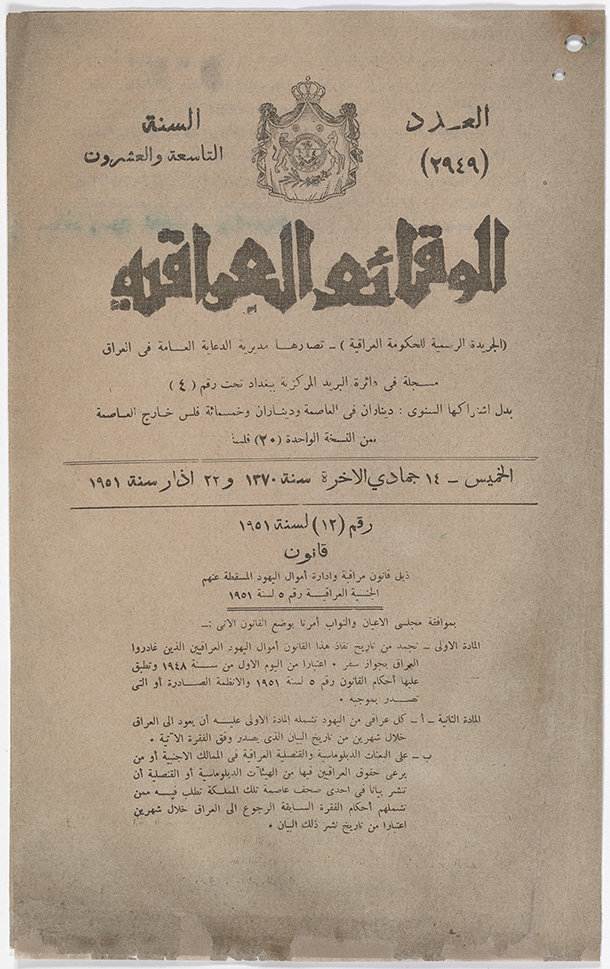 العدد
(٢٩٤٩)
السنة
التاسعة والعشرون
الوقائع العراقية
(الجريدة الرسمية للحكومة العراقية) ــ تصدرها مديرية الدعاية العامة فى العراق
مسجلة فى دائرة البريد المركزية ببغداد تحت رقم (٤)
بدل اشتراكها السنوى : ديناران فى العاصمة وديناران وخمسمائة فلس خارج العاصمة
ثمن النسخة الواحدة (٢٠) فلسا
الخميس ــ ١٤ جمادي الاخرة سنة ١٣٧٠ و ٢٢ اذار سنة ١٩٥١
رقم (١٢) لسنة ١٩٥١
قانون
ذيل قانون مراقبة وادارة أموال اليهود المسقطة عنهم
الجنسية العراقية رقم ٥ لسنة ١٩٥١
بموافقة مجلسى الاعيان والنواب أمرنا بوضع القانون الآتى :ــ
المادة الاولى ــ تجمد من تاريخ نفاذ هذا القانون أموال اليهود العراقيين الذين غادروا
العراق بجواز سفر • اعتبارا من اليوم الاول من سنة ١٩٤٨ وتطبق
عليها أحكام القانون رقم ٥ لسنة ١٩٥١ والانظمة الصادرة أو التى
تصدر بموجبه •
المادة الثانية ــ أ ــ كل عراقى من اليهود تشمله المادة الاولى عليه أن يعود الى العراق
خلال شهرين من تاريخ البيان الذى يصدر وفق الفقرة الآتية •
ب ــ على البعثات الدبلوماسية والقنصلية العراقية فى الممالك الاجنبية أو من
يرعى حقوق العراقيين فيها من الهيئات الدبلوماسية أو القنصلية أن
تنشر بيانا فى احدى صحف عاصمة تلك المملكة تطلب فيه ممن
تشملهم أحكام الفقرة السابقة الرجوع الى العراق خلال شهرين
اعتبارا من تاريخ نشر ذلك البيان •